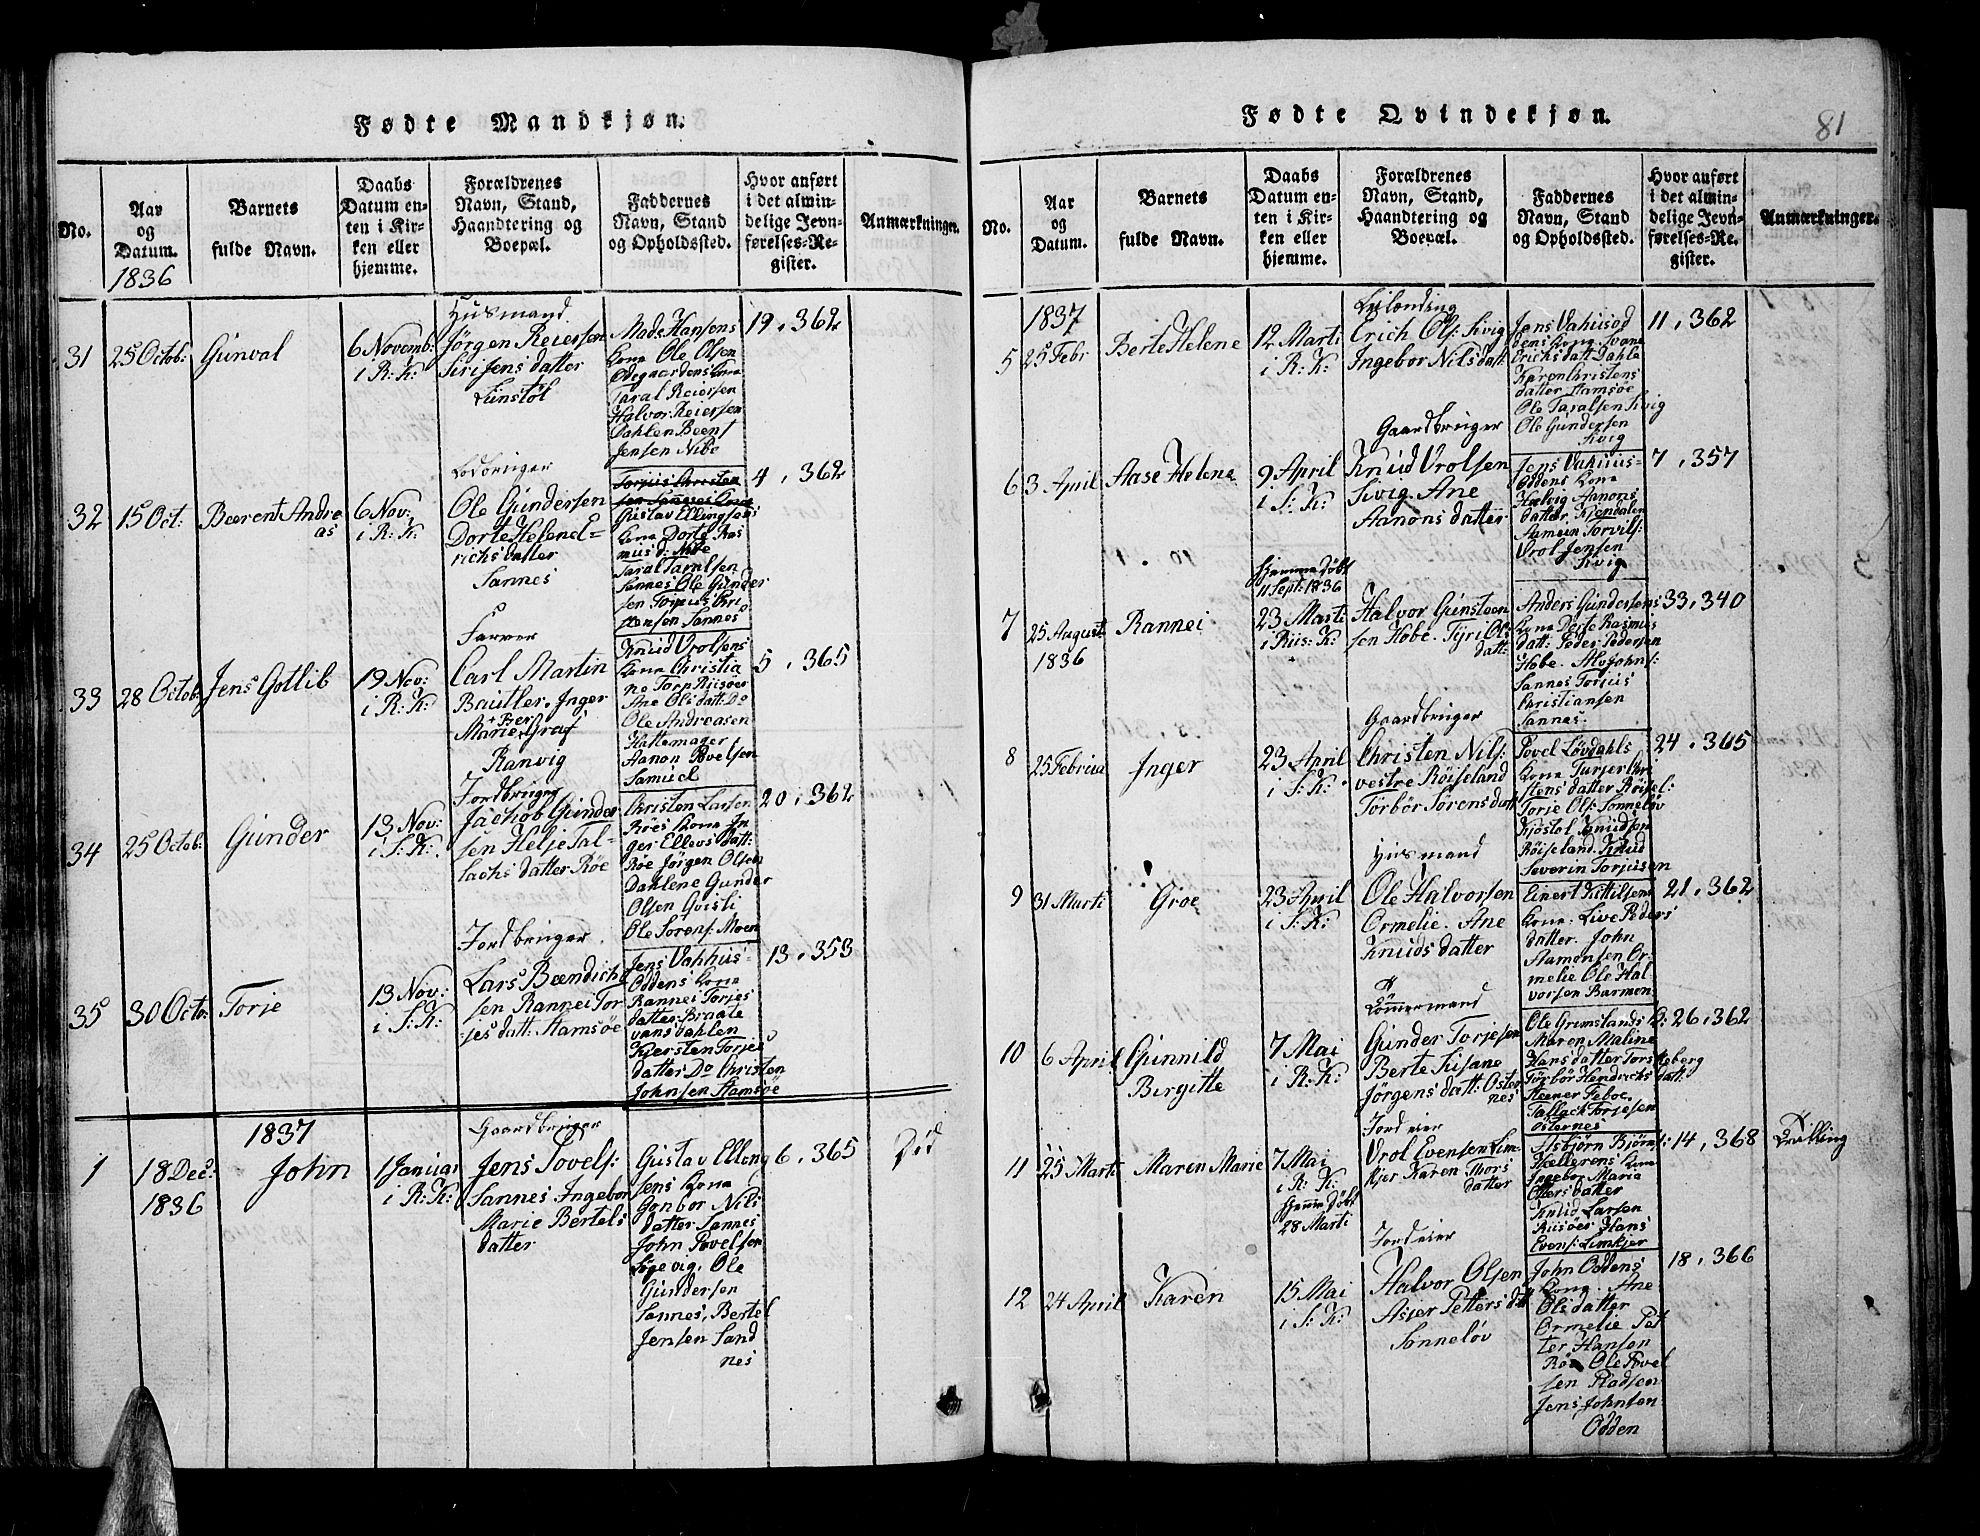 Fødte Mandkjøn.
No.
Aar
og
Datum.
1836
Barnets
fulde Navn.
Daabs
Datum en-
ten i Kir-
ken eller
hjemme.
Forældrenes
Navn, Stand,
Haandtering og
Boepæl.
Faddernes
Navn, Stand
og Opholdssted.
Hvor anført
i det almin-
delige Jevn-
førelses-Re-
gister.
Anmærkninger.
31
25 Octob:
Gunval
6 Novemb:
i R: K:
Husmand
Jørgen Reiersen
Siri Jens datter
Lunstøl
Mads Hansens
Kona Ole Olsen
Ødegaardens Kona
Taral Reiersen
Halvor Reiersen
Dahlen Beent
Jensen Nibe
19, 362
32
15 Oct:
Beerent Andre
as
6 Nov:
i R: K:
Ole Gundersen
Dorte Helene
richs datter
Sannes
Gustav Ellingsens
Kona Dorte Ras
mus d: Nibe
Taral Taralsen
Sannes Ole Gunder
sen Torjus Chri
stensen Sannes
4, 362
33
28 Octob:
Jens Gotlib
19 Nov:
i R: K:
Farver
Carl Martin
Bautler. Inger
Marie Graf
Ranvig
Knud Vrolsens
Kona Christia
ne Torp Riisøer
Ane Ols datt: Do
Ole Andreasen
Hattemager
Aanon Povelsen
Samuel
5, 365
34
25 Octob:
Gunder
13 Nov:
i S: K:
Jordbruger
Jachob Gunder
sen Helje Tal-
lachs datter Røe
Christen Larsen
Røes Kona In
ger Ellevs datt:
Røe Jørgen Olsen
Dahlene Gunder
Olsen Qvisti
Ole Sørens: Moen
20, 362
35
30 Octo:
Torje
13 Nov:
i S: K:
Jordbruger
Lars Beendich
sen Rannei Tor
jes datt: Stamsøe
Jens Vahhus-
Oddens Kona
Rannei Torjes
datter Braate
vans dahlen
Kjersten Torjes
datter Do Christen
Johnsen Stamsøe
13, 353
1837
1
18 Dec:
1836
John
1 Januar
i R: K:
Gaardbruger
Jens Povels:
Sannes Ingebor
Marie Bertels
datter
Gustav Elling
sens Kona
Gonbor Nils
datter Sannes
John Povelsen
Søgevig, Ole
Gundersen
Sannes, Bertel
Jensen Sand
nes
6, 365
Død
Fødte Qvindekjøn.
81
No.
Aar
og
Datum.
Barnets
fulde Navn.
Daabs
Datum en-
ten i Kir-
ken eller
hjemme.
Forældrenes
Navn, Stand,
Haandtering og
Boepæl.
Faddernes
Navn, Stand
og Opholdssted.
Hvor anført
i det almin-
delige Jevn-
førelses-Re-
gister.
Anmærkninger.
1837
5
25 Febr
Berte Helene
12 Marti
i R: K:
Leilending
Erich Ols: Sivig
Ingebor Nils datt:
Jens Vahusod
dens Kona. Svane
Erichs datt Dahla
Karen Christens
datter Stamsøe
Ole Taralsen Sivig
Ole Gundersen
Sivig
11, 362
6
3 April
Aase Helene
9 April
i S: K:
Gaardbruger
Knud Vrolsen
Sivig. Ane
Aanons datter
Jens Vahuus-
Oddens Kona
Helveg Aanons
datter Kjendalen
Vrol Jensen
Sivig
7, 357
7
25 August
1836
Rannei
Hjemme døbt
11 Sept: 1836
23 Marti
i Riis: K:
Halvor Gunsteen
sen Hobe. Tyri Ols
datt:
Anders Gundersens
Kona Dorte Rasmus
datt: Peder Pedersen
Hobe. Alv Johns:
Sannes Torjus
Christiansen
Sannes.
33, 340
8
25 Februa
Inger
23 April
i S: K:
Gaardbruger
Christen Nils:
vestre Røiseland
Torbør Sørens datt
Povel Løvdahls
Kona Turjer Chri
stens datter Røisel:
Torje Ols: Sonneløv
Kjøstol Knudsen
Røiseland. Knud
Severin Torjusen
24, 365
9
31 Marti
Groe
23 April
i S: K:
Husmand
Ole Halvorsen
Ormelie. Ane
Knuds datter
Einert Kittilsens
Kona: Live Peders
datter. John
Aamonsen Or
melie Ole Hal
vorsen Barmen
21, 362
10
6 April
Gunnild
Birgitte
7 Mai
i R: K:
Tømmermand
Gunder Torjesen
Berte Susane
Jørgens datt: Oster
nes
Ole Grimslands K:
Maren Maline
Hans datter Torskeberg
Torbør Hendrichs datt:
Steener Feboe
Tallack Torjesen
Osternes
26, 362
11
25 Marti
Maren Marie
7 Mai
i R: K:
Hjemme Døbt
28 Marti
Jordeier
Vrol Evensen Lim-
kjer Karen Thors
datter
Asbjørn Bjørns:
Hellerens Kona
Ingebor Maria
Ollers datter
Knud Larsen
Riisøer Hans
Evens: Limkjer
14, 368
Tvilling
12
24 April
Karen
15 Mai
i S: K:
Jordeier
Halvor Olsen
Asser Petters dtt
Sonneløv
John Oddens
Kona. Ane
Ols datter
Ormelie Pet
ter Hansen
Røe Ole Povel
sen Pladsen
Jens Johnsen
Odden
18, 366